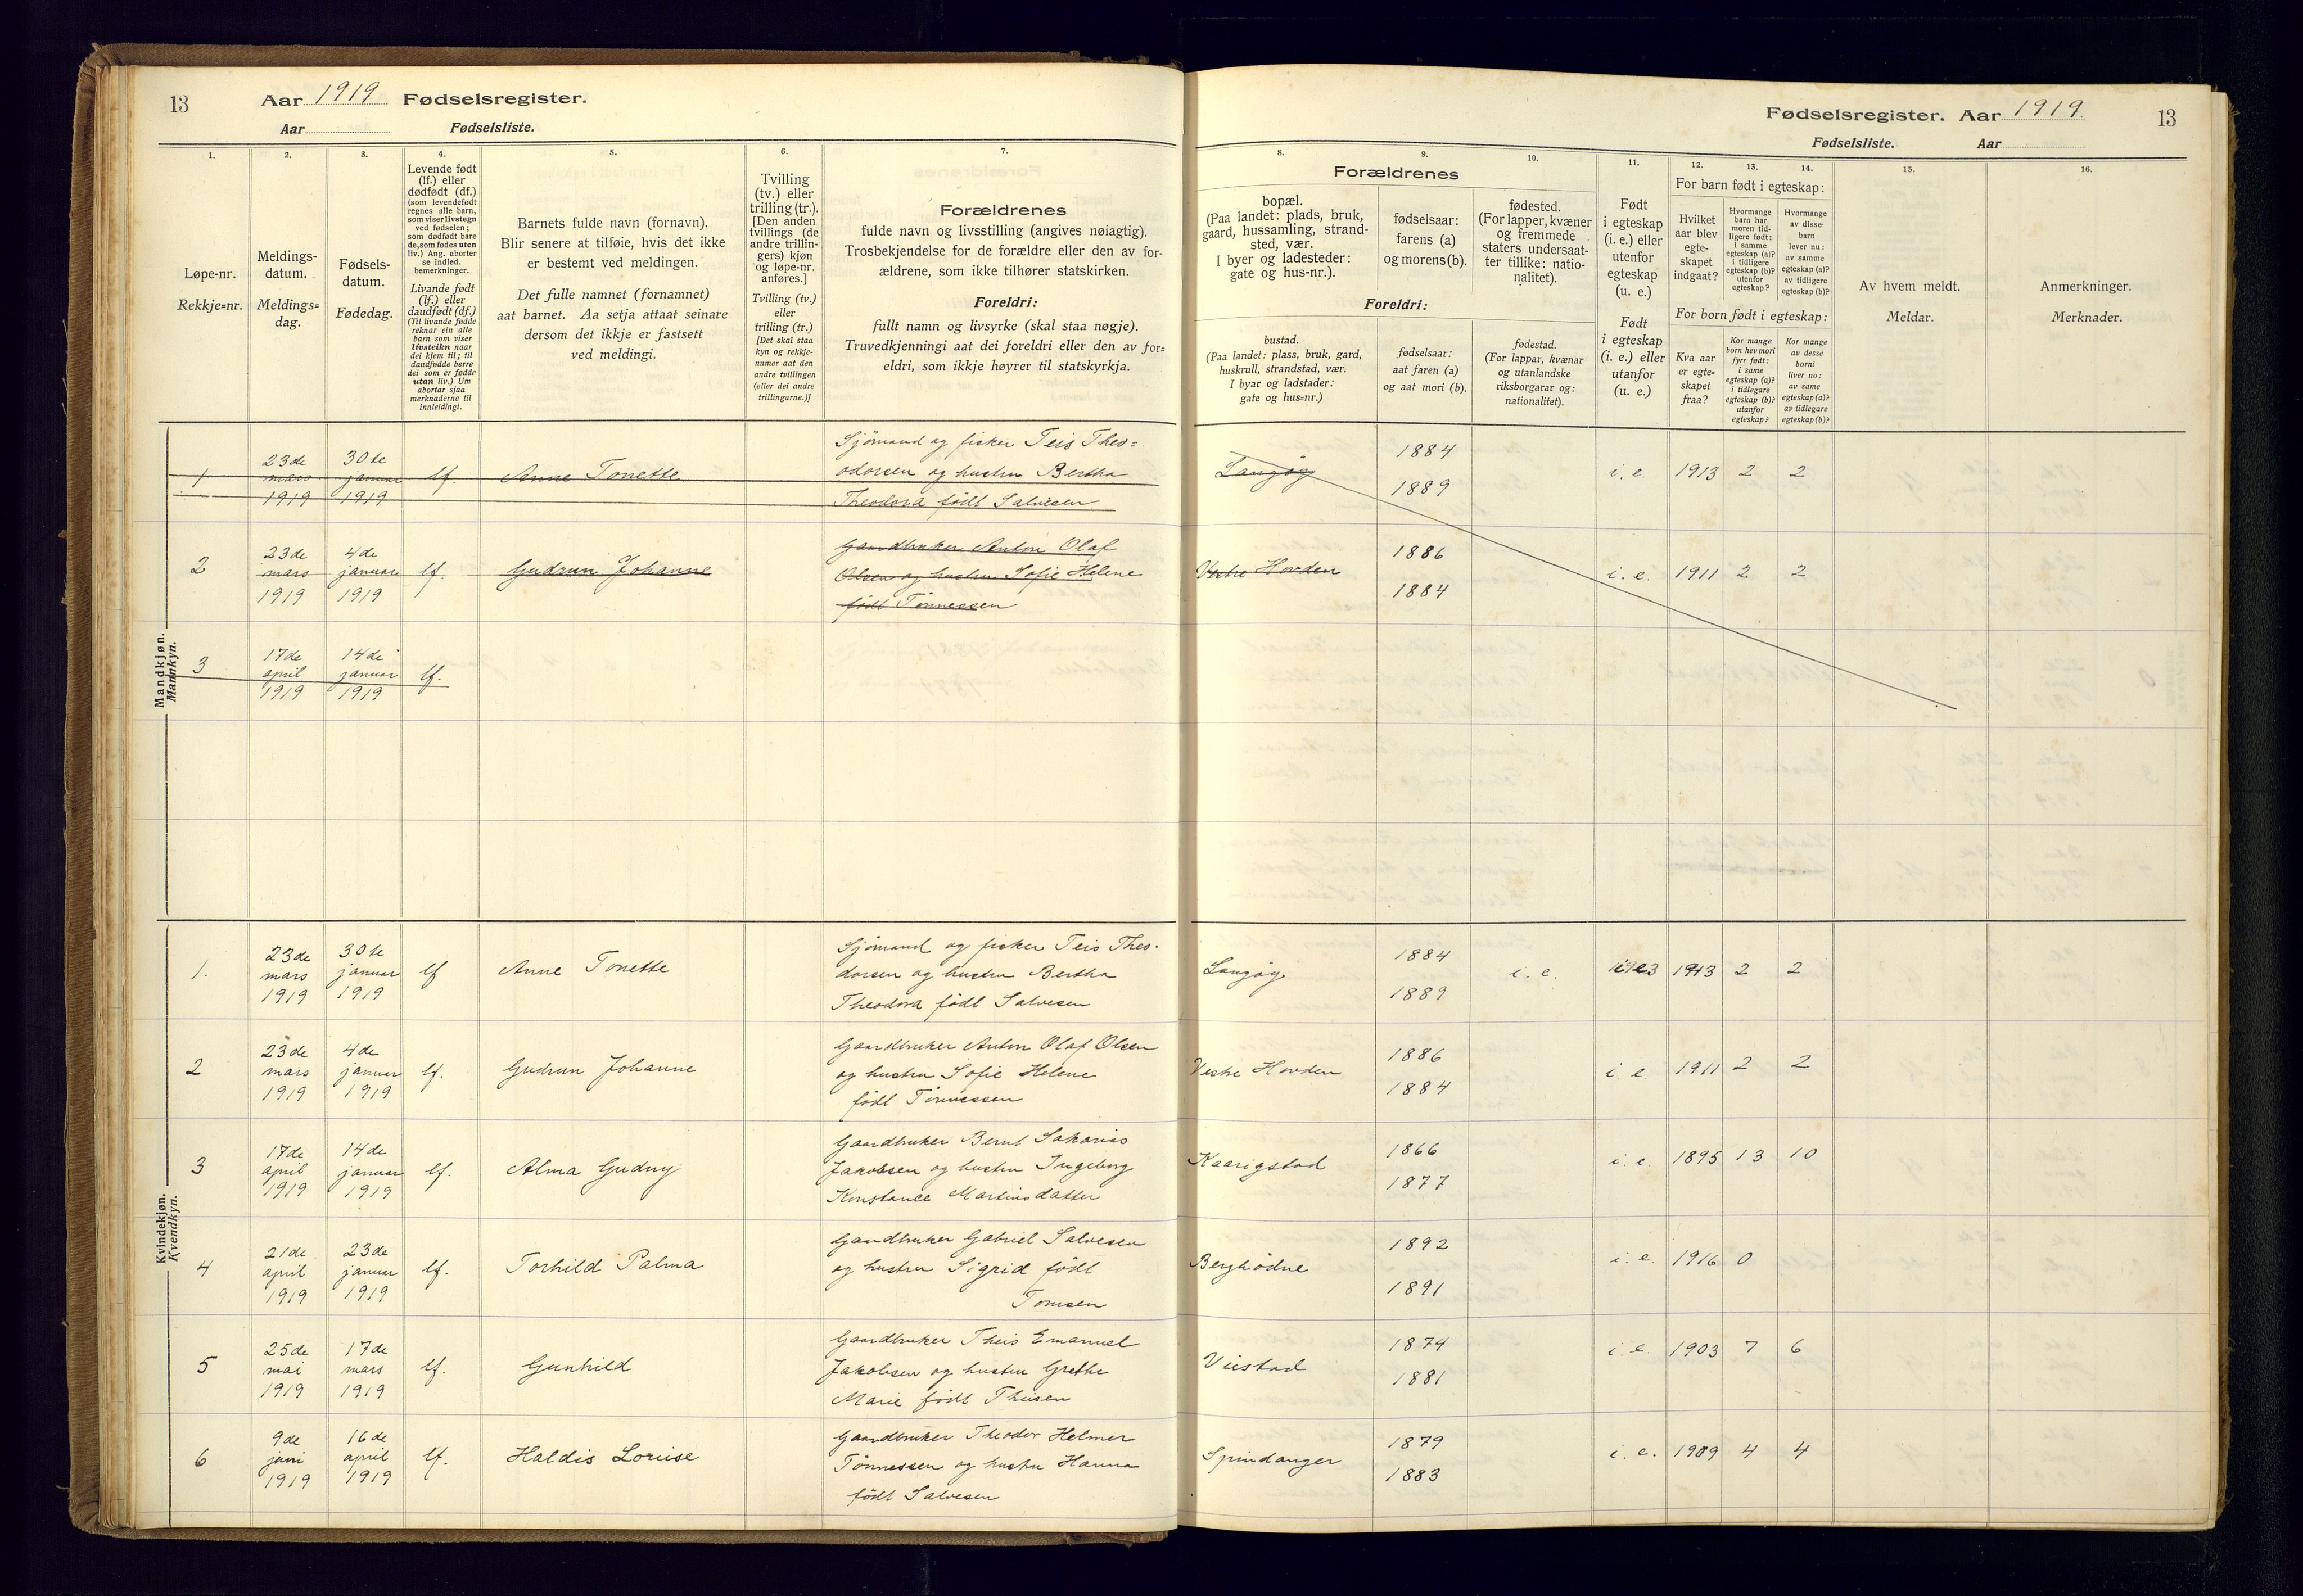 13
Aar 1919 Fødselsregister.
Aar Fødselsliste.
1.
2.
3.
4.
5.
6.
7.
Løpe-nr.
Rekkje=nr.
Meldings-
datum.
Meldings=
dag.
Fødsels-
datum.
Fødedag.
Levende født
(lf.) eller
dødfødt (df.)
(som levendefødt
regnes alle barn,
som viser livstegn
ved fødselen;
som dødfødt bare
de, som fødes uten
liv.) Ang. aborter
se indled.
bemerkninger.
Livande født
(lf.) eller
daudfødt (df.)
(Til livande fødde
reknar ein alle
barn som viser
livsteikn naar
dei kjem til; til
daudfødde berre
dei som er fødde
utan liv.) Um
abortar sjaa
merknaderne til
innleidingi.
Barnets fulde navn (fornavn).
Blir senere at tilføie, hvis det ikke
er bestemt ved meldingen.
Det fulle namnet (fornamnet)
aat barnet. Aa setja attaat seinare
dersom det ikkje er fastsett
ved meldingi.
Tvilling
(tv.) eller
trilling (tr.).
[Den anden
tvillings (de
andre trillin-
gers) kjøn
og løpe-nr.
anføres.]
Tvilling (tv.)
eller
trilling (tr.)
[Det skal staa
kyn og rekkje-
numer aat den
andre tvillingen
(eller dei andre
trillingarne.)]
Forældrenes
fulde navn og livsstilling (angives nøiagtig).
Trosbekjendelse for de forældre eller den av for-
ældrene, som ikke tilhører statskirken.
Foreldri:
fullt namn og livsyrke (skal staa nøgje).
Truvedkjenningi aat dei foreldri eller den av for=
eldri, som ikkje høyrer til statskyrkja.
Mandkjøn.
Mannkyn.
1
23de
mars
1919
30te
januar
1919
lf.
Anne Tonette
Sjømand og fisker Teis Theo=
odorsen og hustru Bertha
Theodora født Salvesen
2
23de
mars
1919
4de
januar
1919
lf.
Gudrun Johanne
Gaardbruker Anton Olaf
Olsen og hustru Sofie Helene
født Tønnessen
3
17de
april
1919
14de
januar
1919
lf.
Kvindekjøn.
Kvendkyn.
1.
23de
mars
1919
30te
januar
1919
lf
Anne Tonette
Sjømand og fisker Teis Theo-
dorsen og hustru Bertha
Theodora født Salvesen
2
23de
mars
1919
4de
januar
1919
lf.
Gudrun Johanne
Gaardbruker Anton Olaf Olsen
og hustru Sofie Helene
født Tønnessen
3
17de
april
1919
14de
januar
1919
lf.
Alma Gudny
Gaardbruker Bernt Sakarias
Jakobsen og hustru Ingeborg
Konstance Martinsdatter
4
21de
april
1919
23de
januar
1919
lf.
Torhild Palma
Gaardbruker Gabriel Salvesen
og hustru Sigrid født
Tomsen
5
25de
mai
1919
17de
mars
1919
lf.
Gunhild
Gaardbruker Theis Emanuel
Jakobsen og hustru Grethe
Marie født Theisen
6
9de
juni
1919
16de
april
1919
lf.
Haldis Lovise
Gaardbruker Theodor Helmer
Tønnessen og hustru Hanna
født Salvesen
Fødselsregister. Aar 1919.
13
Fødselsliste. Aar
8.
9.
10.
11.
12.
13.
14.
15.
16.
Forældrenes
bopæl.
(Paa landet: plads, bruk,
gaard, hussamling, strand-
sted, vær.
I byer og ladesteder:
gate og hus-nr.).
fødselsaar:
farens (a)
og morens (b).
fødested.
(For lapper, kvæner
og fremmede
staters undersaat-
ter tillike: natio-
nalitet).
Foreldri:
bustad.
(Paa landet: plass, bruk, gard,
huskrull, strandstad, vær.
I byar og ladstader:
gate og hus=nr.)
fødselsaar:
aat faren (a)
og aat mori (b).
fødestad.
(For lappar, kvænar
og utanlandske
riksborgarar og:
nationalitet).
Født
i egteskap
(i. e.) eller
utenfor
egteskap
(u. e.)
Født
i egteskap
(i. e.) eller
utanfor
(u. e.)
For barn født i egteskap:
Hvilket
aar blev
egte-
skapet
indgaat?
Hvormange
barn har
moren tid-
ligere født:
i samme
egteskap (a)?
i tidligere
egteskap (b)?
utenfor
egteskap?
Hvormange
av disse
barn
lever nu:
av samme
egteskap (a)?
av tidligere
egteskap (b)?
For born født i egteskap:
Kva aar
er egte=
skapet
fraa?
Kor mange
born hev mori
fyrr født:
i same
egteskap (a)?
i tidlegare
egteskap (b)?
utanfor
egteskap?
Kor mange
av desse
borni
liver no:
av same
egteskap (a)?
av tidlegare
egteskap (b)?
Av hvem meldt.
Meldar.
Anmerkninger.
Merknader.
Langøy
1884
1889
i. e. 1913 2 2
Vestre Hovden
1886
1884
i. e. 1911 2 2
Langøy
1884
1889
i. e.
1913 2 2
Vestre Hovden
1886
1884
i. e. 1911 2 2
Kaarigstad
1866
1877
i. e 1895 13 10
Berghødne
1892
1891
i. e. 1916 0
Viestad
1874
1881
i. e. 1903 7 6
Spindanger
1879
1883
i. e. 1909 4 4